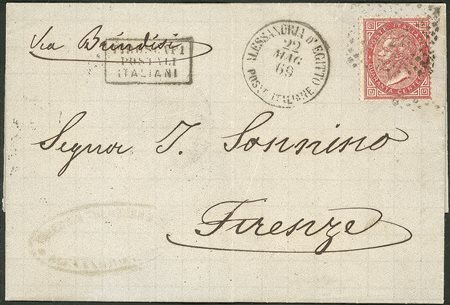 Via Brindisi
PIROSCAFI
POSTALI
ITALIANI
ALESSANDRIA D'EGITTO
22
MAG
69
POSTE ITALIANE
Signor I. Sonnino
Firenze